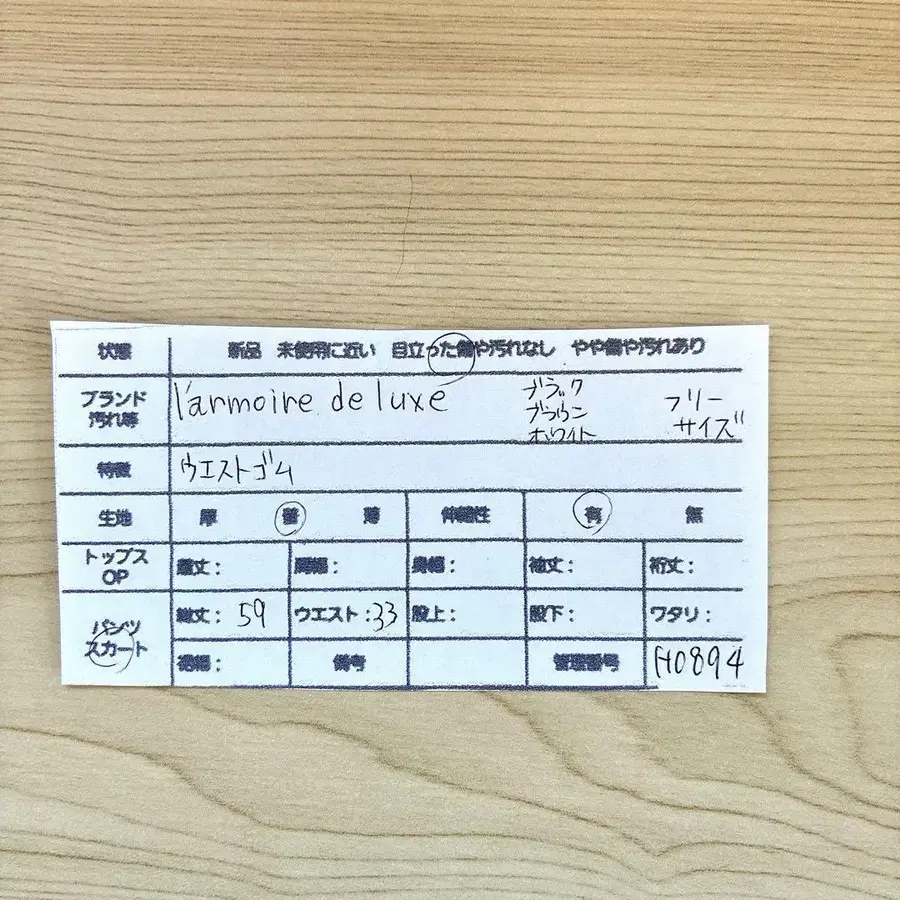 状態 新品 未使用に近い 目立った傷や汚れなし やや傷や汚れあり
ブランド
汚れ等
l'armoire de luxe
ブラック
ブラウン
ホワイト
フリー
サイズ
特徴 ウエストゴム
生地 厚 普 薄 伸縮性 有 無
トップス
OP
着丈: 肩幅: 身幅: 袖丈: 裄丈:
パンツ
スカート
総丈: 59 ウエスト:33 股上: 股下: ワタリ:
裾幅: 備考 管理番号 H0894